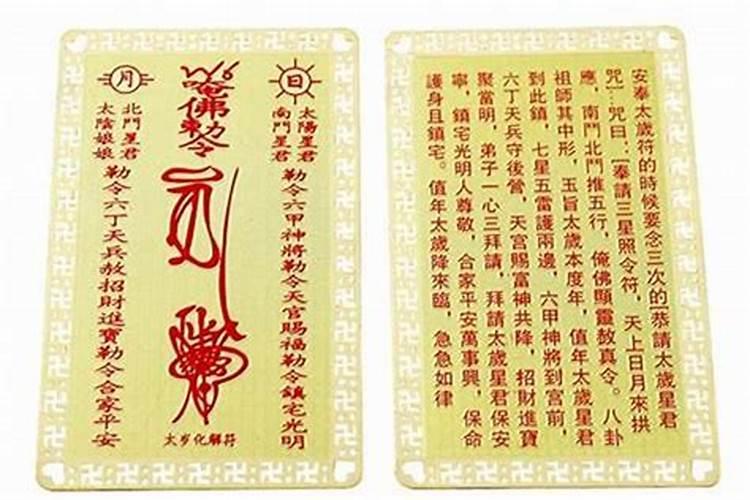 日
太陽星君
南鬥星君
勒令六甲神將勒令天官賜福勒令鎮宅光明
唵佛勅令
太岁化解符
月
北鬥星君
太陰娘娘
勒令六丁天兵赦招財進寶勒令合家平安
安奉太歲符的時候要念三次的[恭請太歲星君
咒]：咒曰：[奉請三星照令符，天上日月來拱
應，南鬥北鬥推五行，俺佛顯靈敖真令。八卦
祖師其中形，玉旨太歲本度年，值年太歲星君
到此鎮，七星五雷護兩邊，六甲神將到宫前，
六丁天兵守後營，天宫賜富神共降，招財進寶
聚當明，弟子一心三拜請，拜請太歲星君保安
寧，鎮宅光明人尊敬，合家平安萬事興，保命
護身且鎮宅。值年太歲降來臨，急急如律